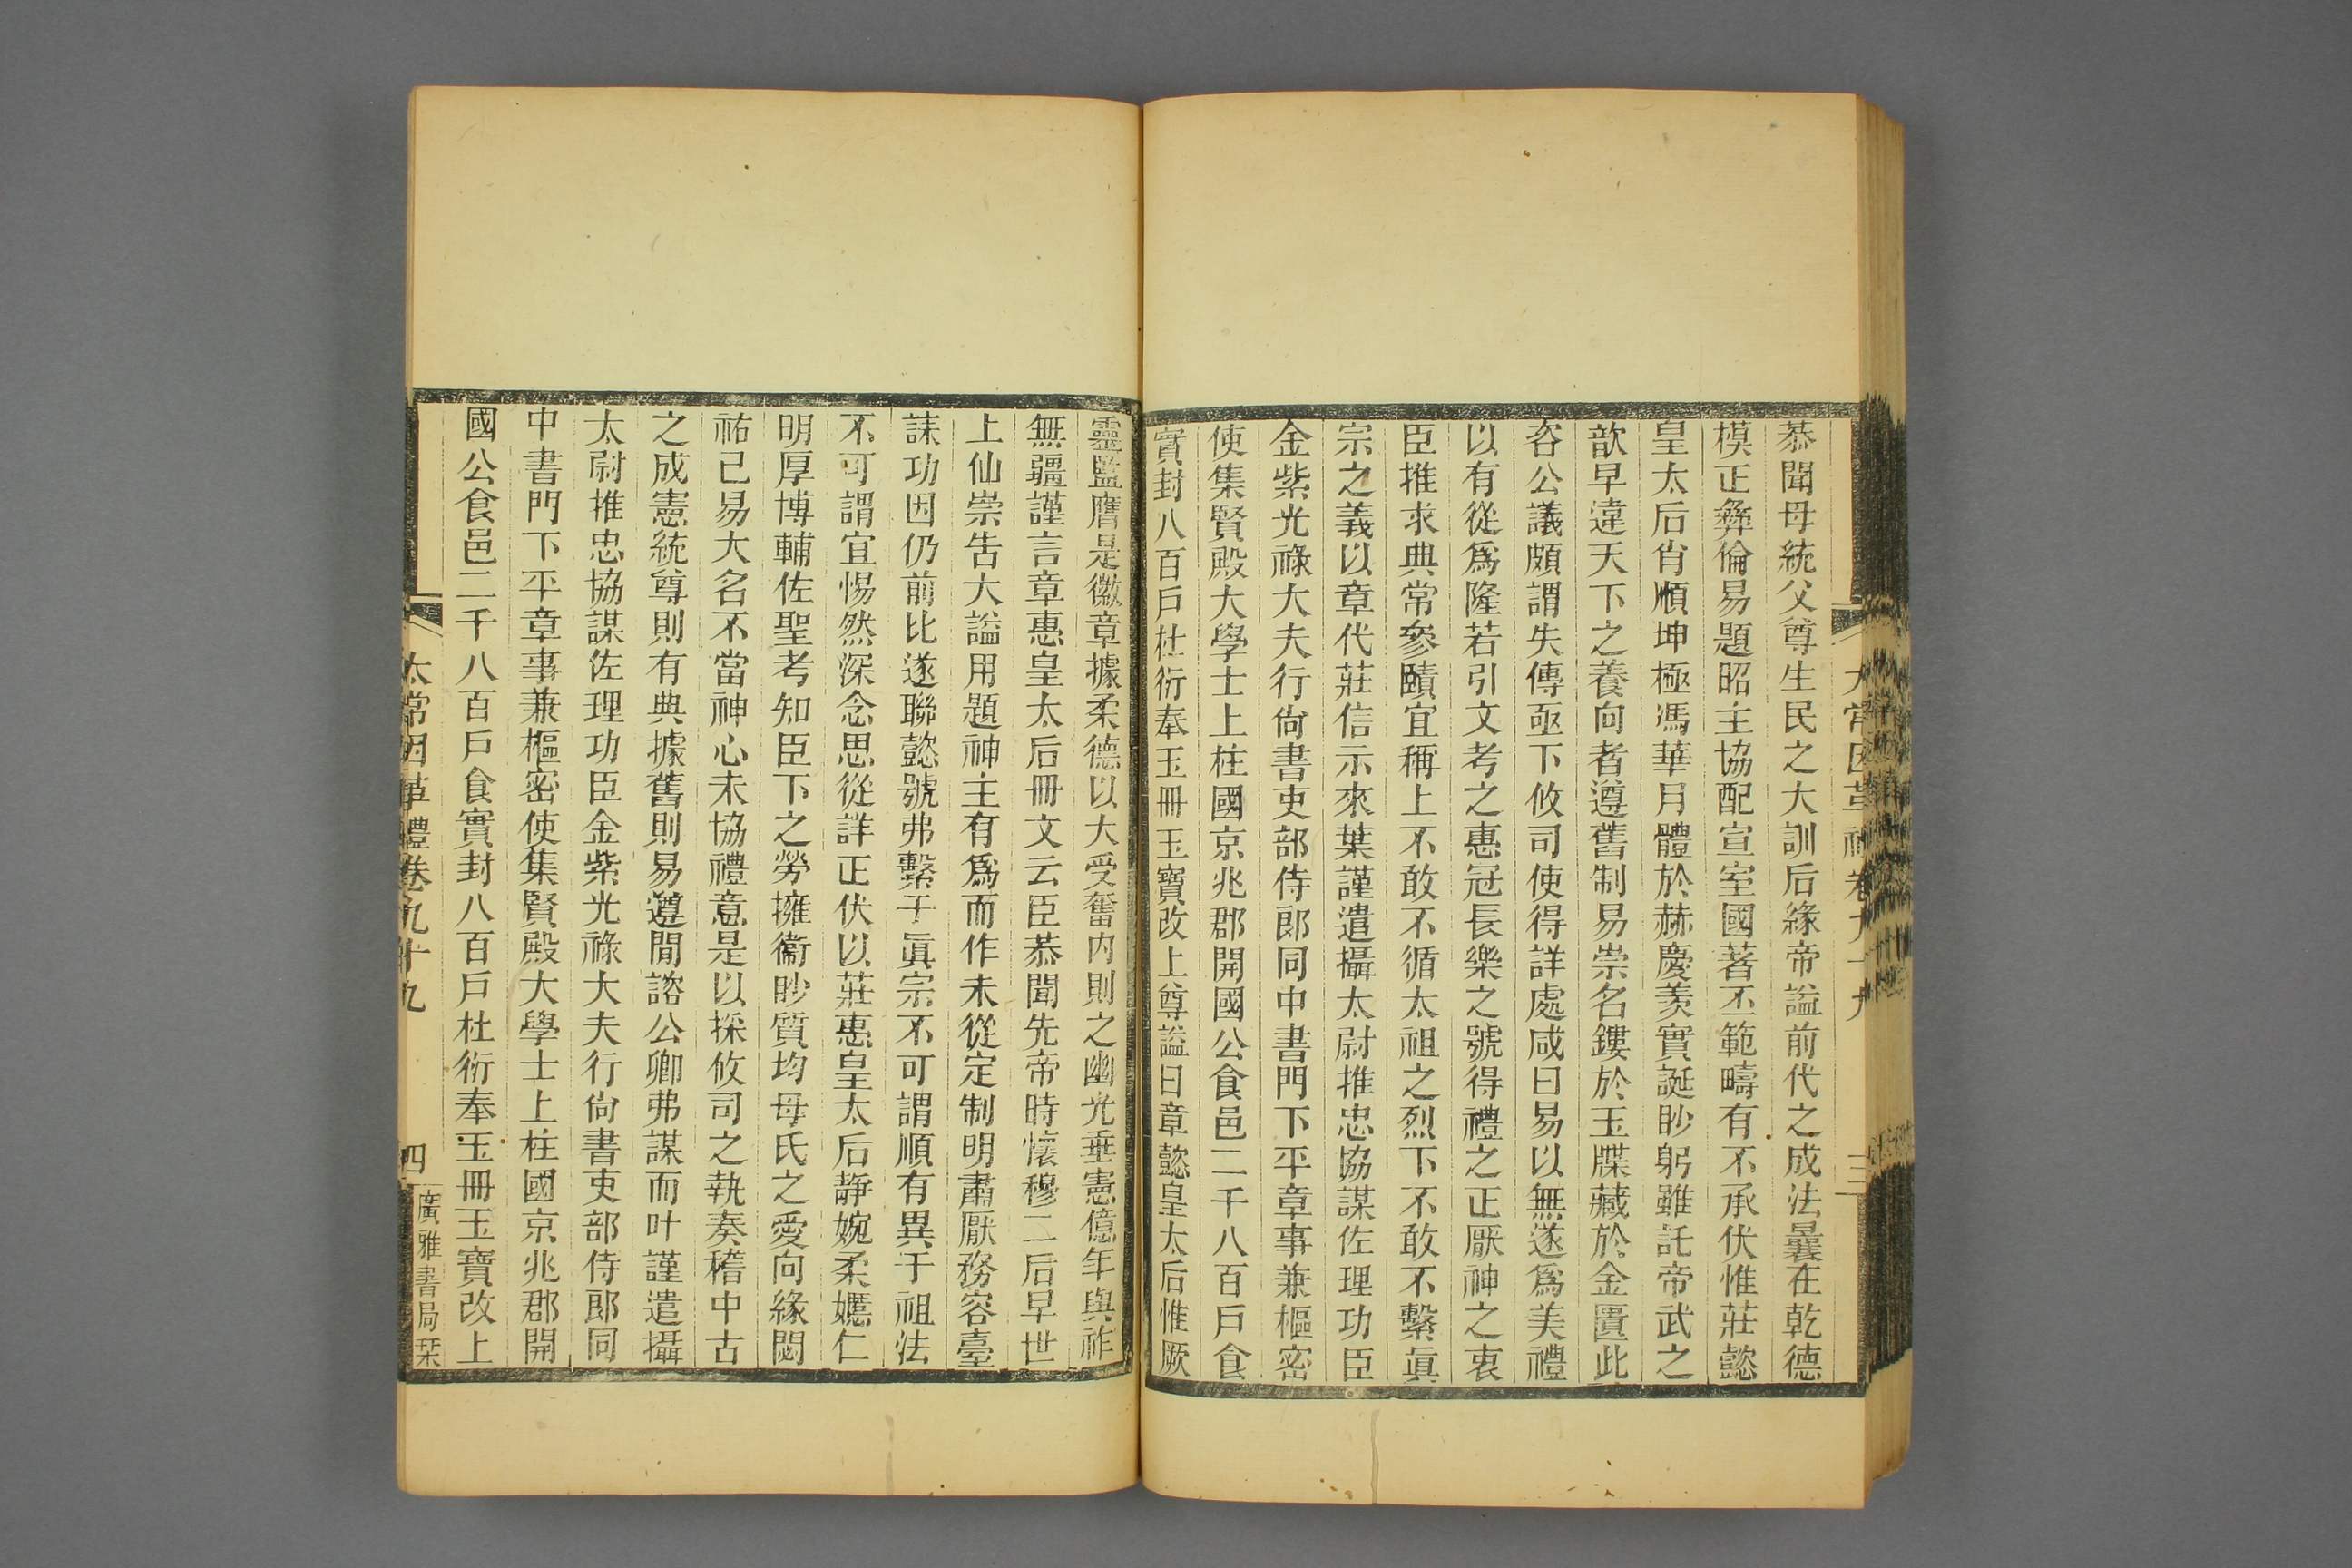 恭聞母統父尊生民之大訓后緣帝謚前代之成法曩在乾德
模正彝倫易題昭主協配宣室國著丕範疇有不承伏惟莊懿
皇太后肖順坤極馮華月體於赫慶羨實誕眇躬雖託帝武之
歆早違天下之養向者遵舊制易崇名鏤於玉牒藏於金匱此
咨公議頗謂失傳亟下攸司使得詳處咸曰易以無遂爲美禮
以有從爲隆若引文考之惠冠長樂之號得禮之正厭神之衷
臣推求典常參賾宜稱上不敢不循太祖之烈下不敢不繫眞
宗之義以章代莊信示來葉謹遣攝太尉推忠協謀佐理功臣
金紫光祿大夫行尙書吏部侍郎同中書門下平章事兼樞密
使集賢殿大學士上柱國京兆郡開國公食邑二千八百戶食
實封八百戶杜衍奉玉冊玉寶改上尊謚曰章懿皇太后惟厥
靈監膺是徽章據柔德以大受奮内則之幽光垂憲億年與祚
無疆謹言章惠皇太后冊文云臣恭聞先帝時懷穆二后早世
上仙崇吿大謚用題神主有爲而作未從定制明肅厭務容臺
誄功因仍前比遂聯懿號弗繫于眞宗不可謂順有異于祖法
不可謂宜惕然深念思從詳正伏以莊惠皇太后靜婉柔嫕仁
明厚博輔佐聖考知臣下之勞擁衞眇質均母氏之愛向緣閟
祐已易大名不當神心未協禮意是以採攸司之執奏稽中古
之成憲統尊則有典據舊則易遵閒諮公卿弗謀而叶謹遣攝
太尉推忠協謀佐理功臣金紫光祿大夫行尙書吏部侍郎同
中書門下平章事兼樞密使集賢殿大學士上柱國京兆郡開
國公食邑二千八百戶食實封八百戶杜衍奉玉冊玉寶改上
太常因革禮卷九十九
四
廣雅書局栞